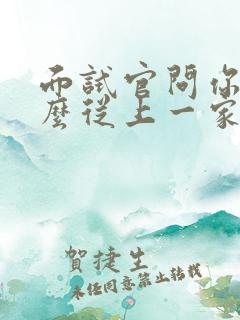 而試官問你
麼從上一家
賀捷生
未任同意禁止轉載